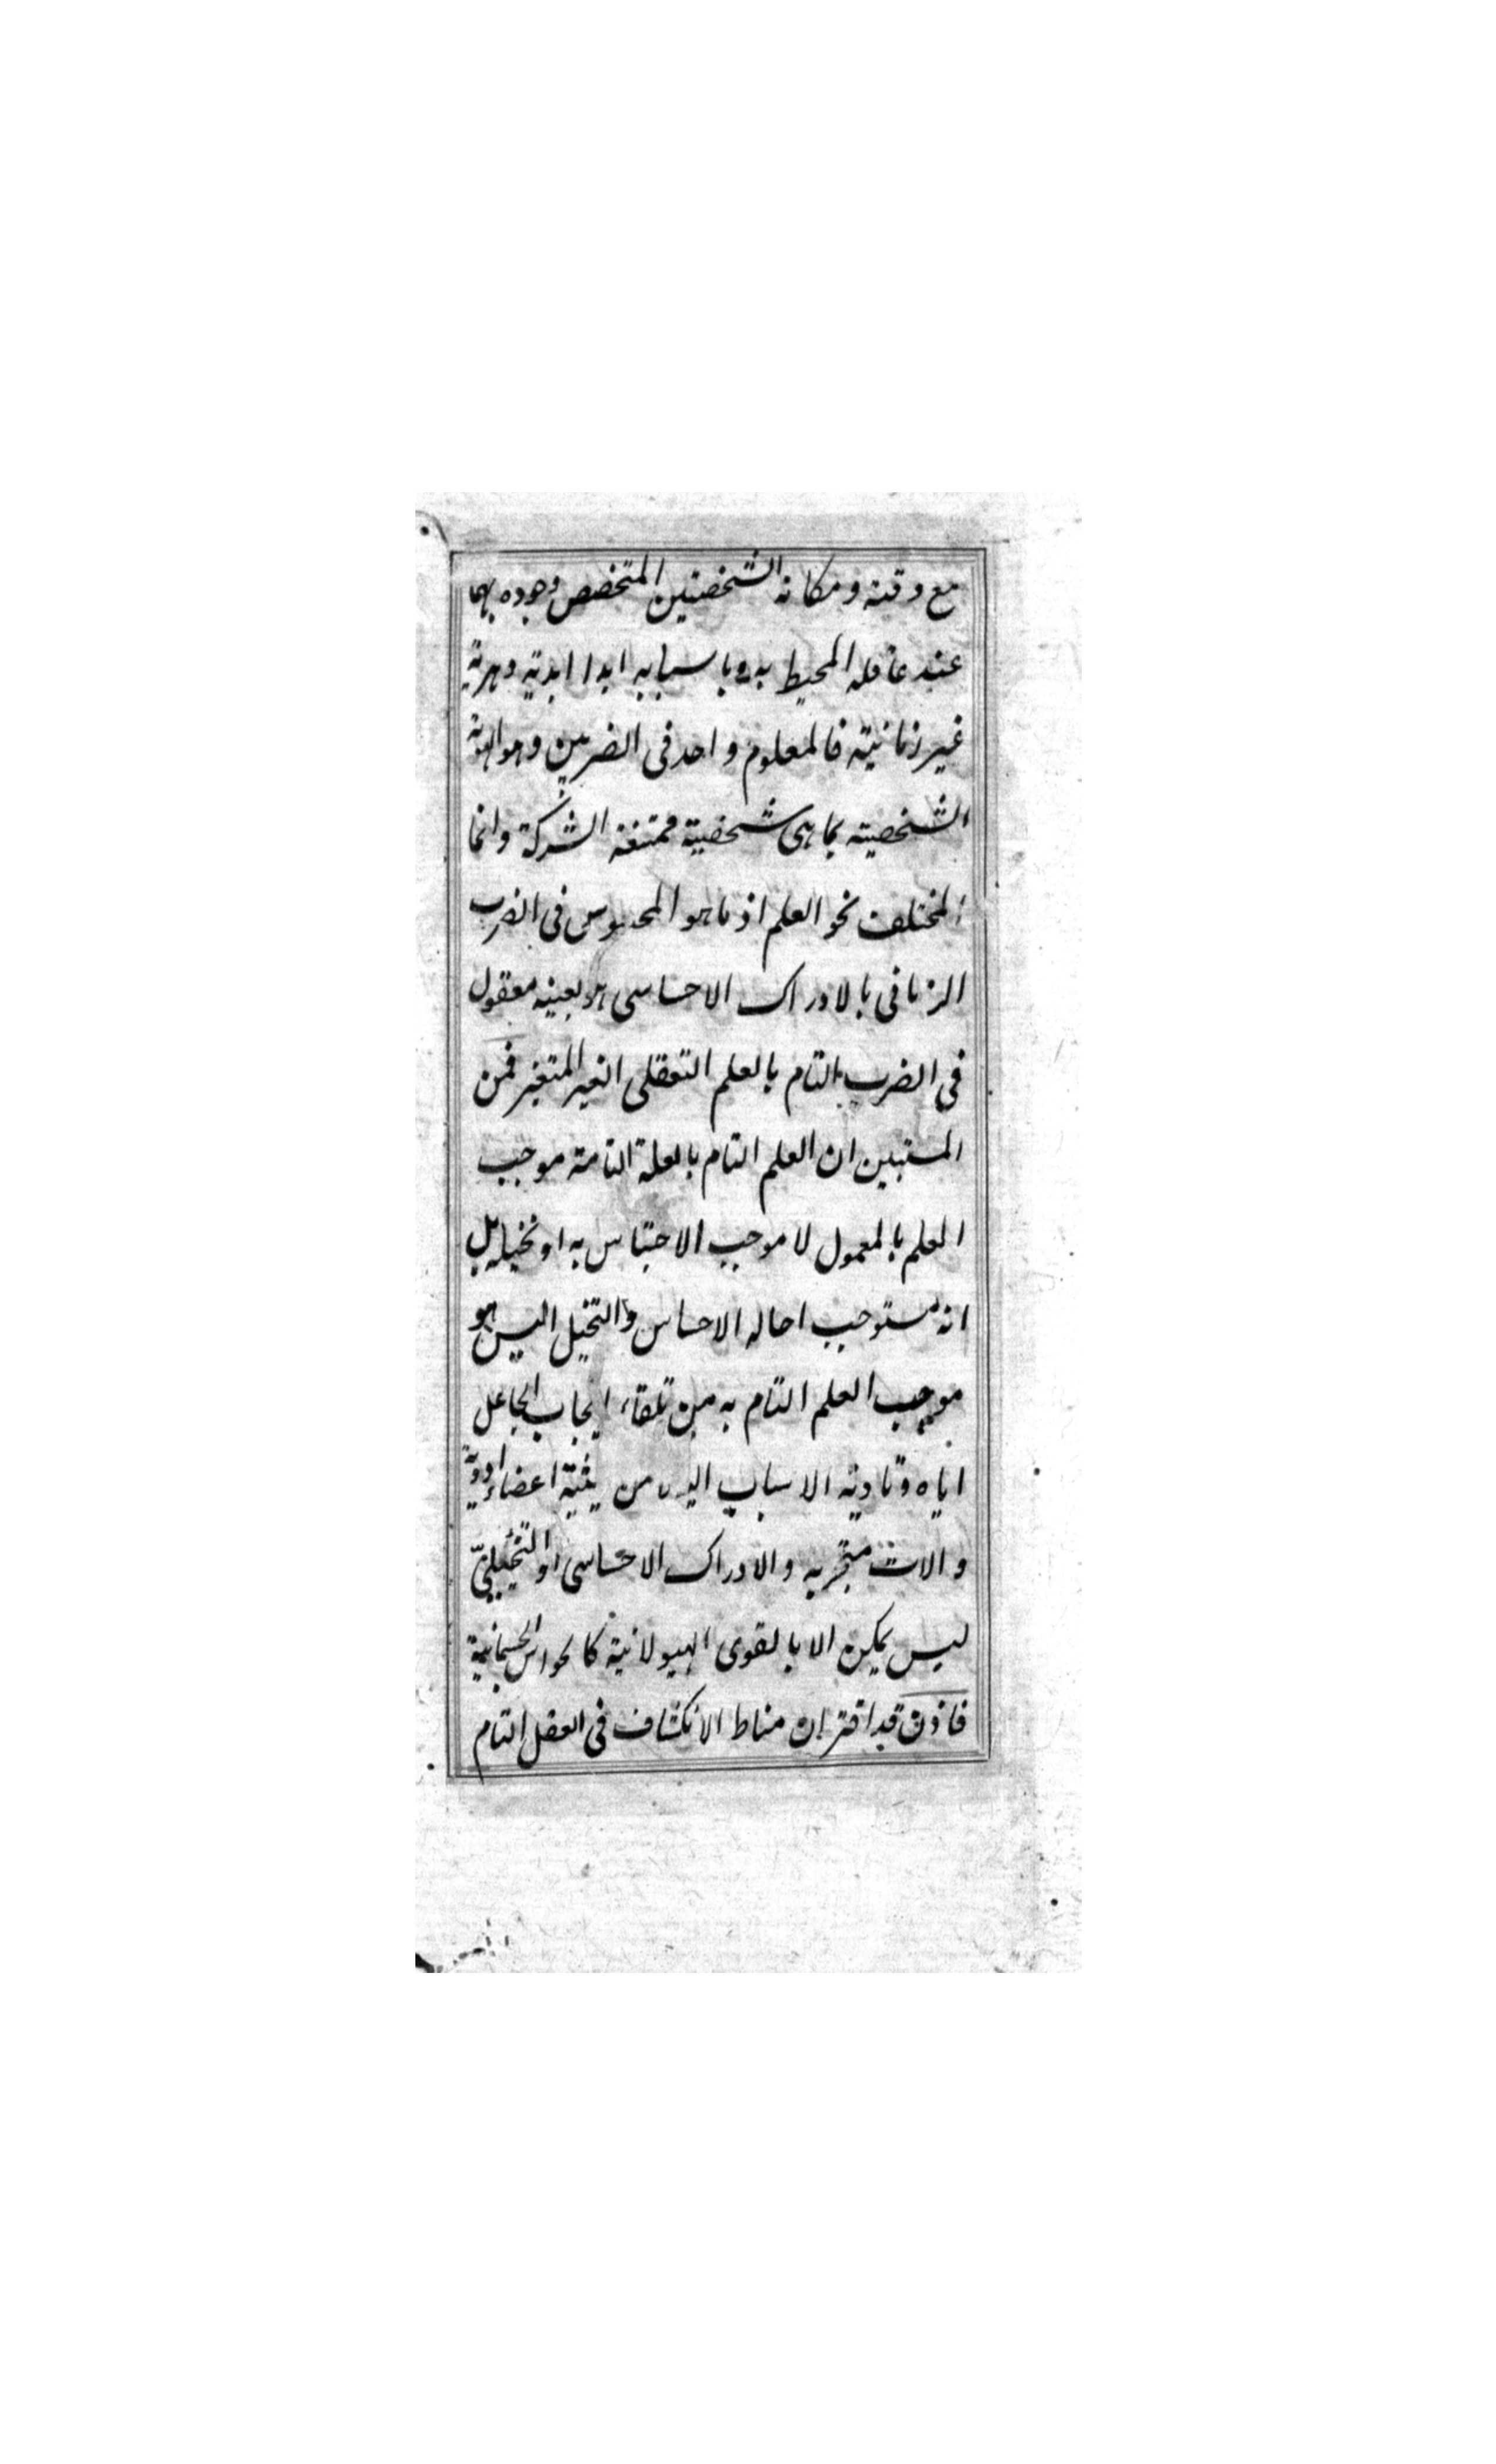 مع وقته ومكانه الشخصيتين المتخصص وجوده بهما
عند عاقله المحيط به وباسبابه ابدا ابدية دهرية
غير زمانية فالمعلوم واحد فى الضربين وهو الهوية
الشخصية بما هى شخصية ممتنعة الشركة وانما
المختلف نحو العلم اذ ما هو المحسوس فى الضرب
الزمانى بالادراك الاحساسى هو بعينه معقول
فى الضرب التام بالعلم التعقلى الغير المتغير فمن
المستبين ان العلم التام بالعلة التامة موجب
العلم بالمعمول لا موجب الاحتباس به او تخيله بل
انه مستوجب احاله الاحساس والتخيل اليس هو
موجب العلم التام به من تلقاء ايجاب الجاعل
اياه وتاديه الاسباب اليه من اعضاء
والات متجزيه والادراك الاحساسى او التخيلى
ليس يمكن الا بالقوى الهيولانية كالحواس الجسمانية
فاذن قد اقتر ان مناط الانكشاف فى العقل التام